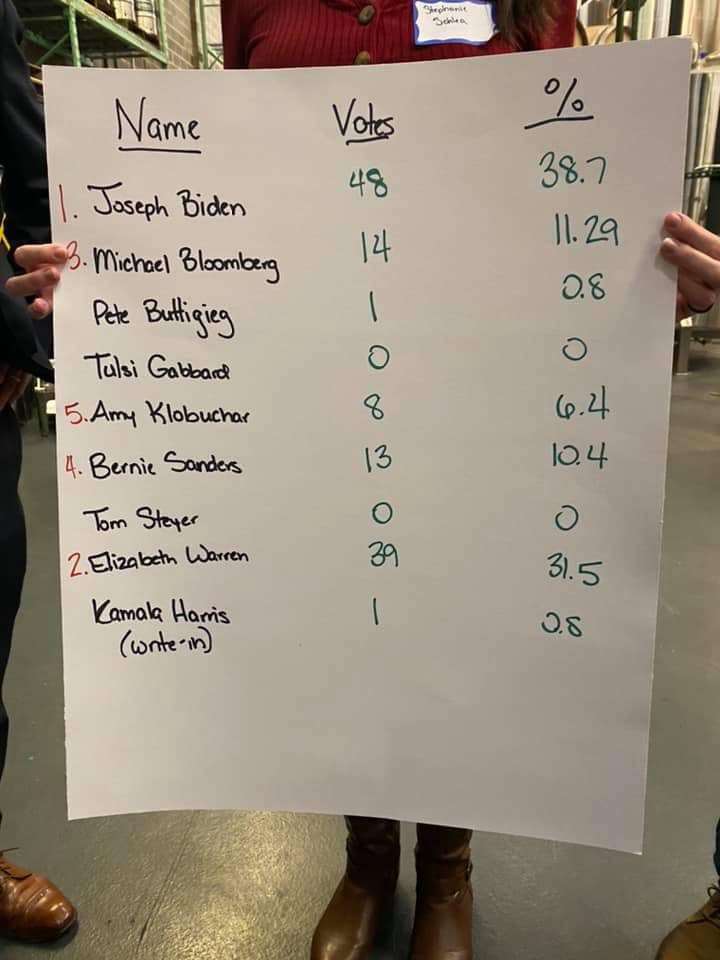 Stephanie
Schlea
Name Votes %
1. Joseph Biden 48 38.7
3. Michael Bloomberg 14 11.29
Pete Buttigieg 1 0.8
Tulsi Gabbard 0 0
5. Amy Klobuchar 8 6.4
4. Bernie Sanders 13 10.4
Tom Steyer 0 0
2. Elizabeth Warren 39 31.5
Kamala Harris 1 0.8
(write-in)